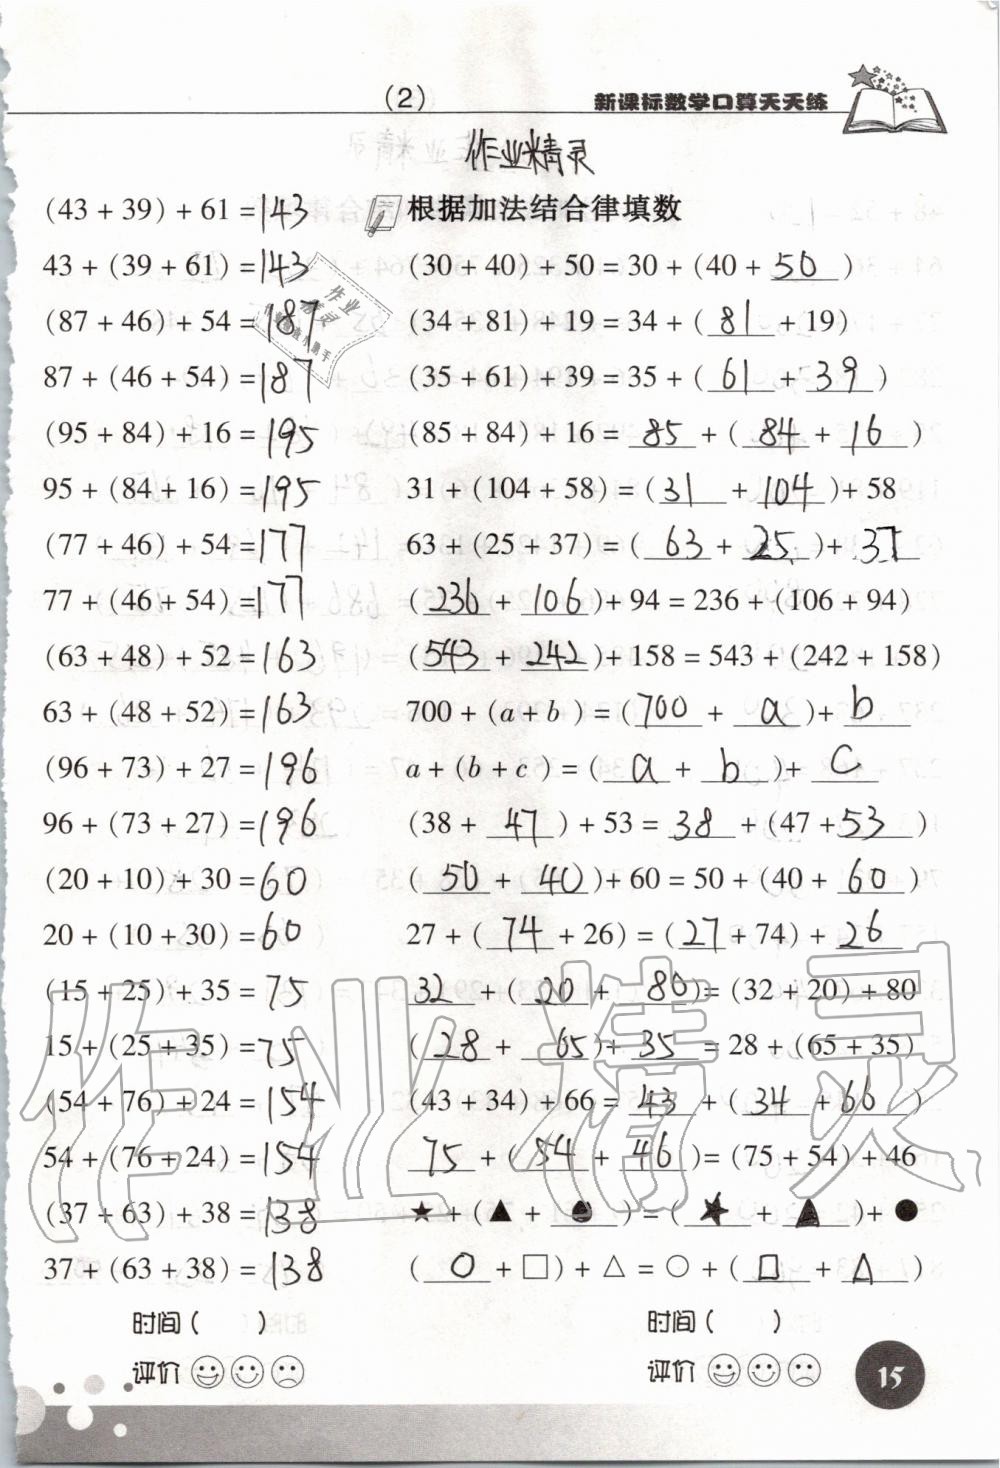 (2)
新课标数学口算天天练
作业精灵
(43 + 39) + 61 = 143
43 + (39 + 61) = 143
(87 + 46) + 54 = 187
87 + (46 + 54) = 187
(95 + 84) + 16 = 195
95 + (84 + 16) = 195
(77 + 46) + 54 = 177
77 + (46 + 54) = 177
(63 + 48) + 52 = 163
63 + (48 + 52) = 163
(96 + 73) + 27 = 196
96 + (73 + 27) = 196
(20 + 10) + 30 = 60
20 + (10 + 30) = 60
(15 + 25) + 35 = 75
15 + (25 + 35) = 75
(54 + 76) + 24 = 154
54 + (76 + 24) = 154
(37 + 63) + 38 = 138
37 + (63 + 38) = 138
时间( )
评价
根据加法结合律填数
(30 + 40) + 50 = 30 + (40 + 50)
(34 + 81) + 19 = 34 + (81 + 19)
(35 + 61) + 39 = 35 + (61 + 39)
(85 + 84) + 16 = 85 + (84 + 16)
31 + (104 + 58) = (31 + 104) + 58
63 + (25 + 37) = (63 + 25) + 37
(236 + 106) + 94 = 236 + (106 + 94)
(543 + 242) + 158 = 543 + (242 + 158)
700 + (a + b) = (700 + a) + b
a + (b + c) = (a + b) + c
(38 + 47) + 53 = 38 + (47 + 53)
(50 + 40) + 60 = 50 + (40 + 60)
27 + (74 + 26) = (27 + 74) + 26
32 + (20 + 80) = (32 + 20) + 80
(28 + 65) + 35 = 28 + (65 + 35)
(43 + 34) + 66 = 43 + (34 + 66)
75 + (54 + 46) = (75 + 54) + 46
★ + (▲ + ●) = (★ + ▲) + ●
(○ + □) + △ = ○ + (□ + △)
时间( )
评价
15
作业精灵